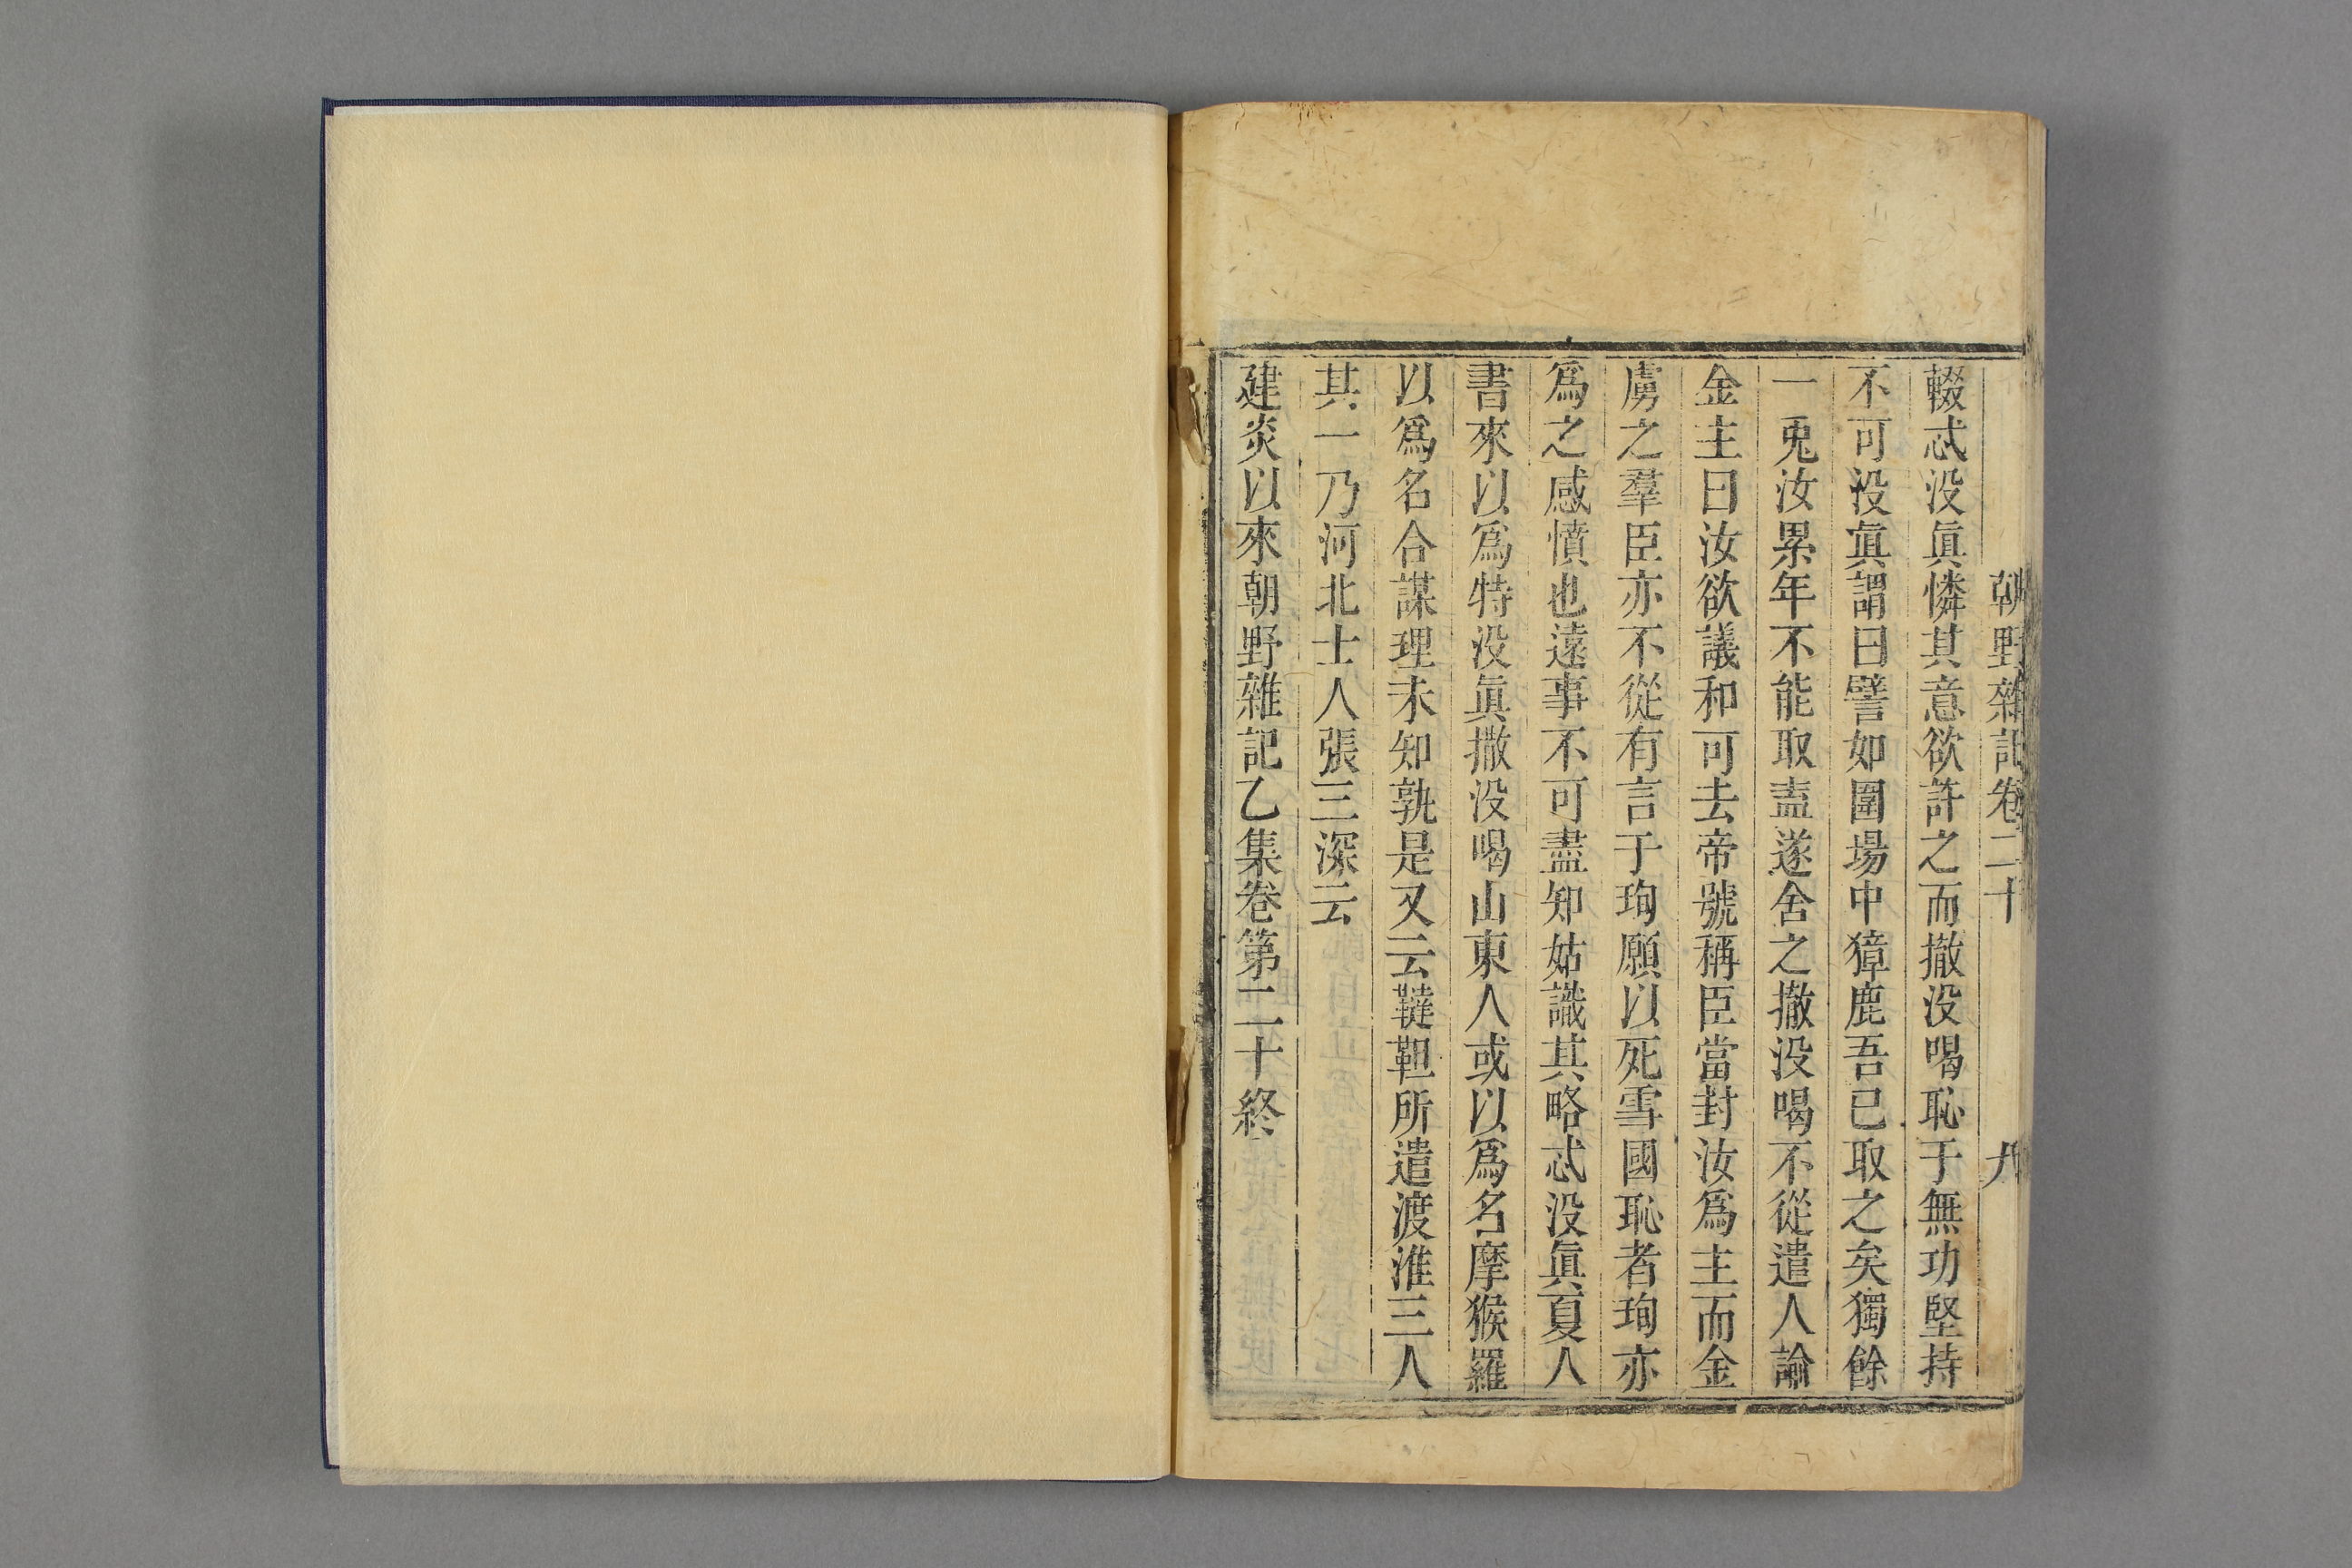 朝野雜記卷二十 九
輟忒没眞憐其意欲許之而撤没喝恥于無功堅持
不可没眞謂曰譬如圍場中獐鹿吾已取之矣獨餘
一兎汝累年不能取盍遂舍之撤没喝不從遣人諭
金主曰汝欲議和可去帝號稱臣當封汝爲主而金
虜之羣臣亦不從有言于珣願以死雪國恥者珣亦
爲之感憤也遠事不可盡知姑識其略忒没眞夏人
書來以爲特没眞撒没喝山東人或以爲名摩猴羅
以爲名合謀理未知孰是又云韃靼所遣渡淮三人
其一乃河北士人張三深云
建炎以來朝野雜記乙集卷第二十終